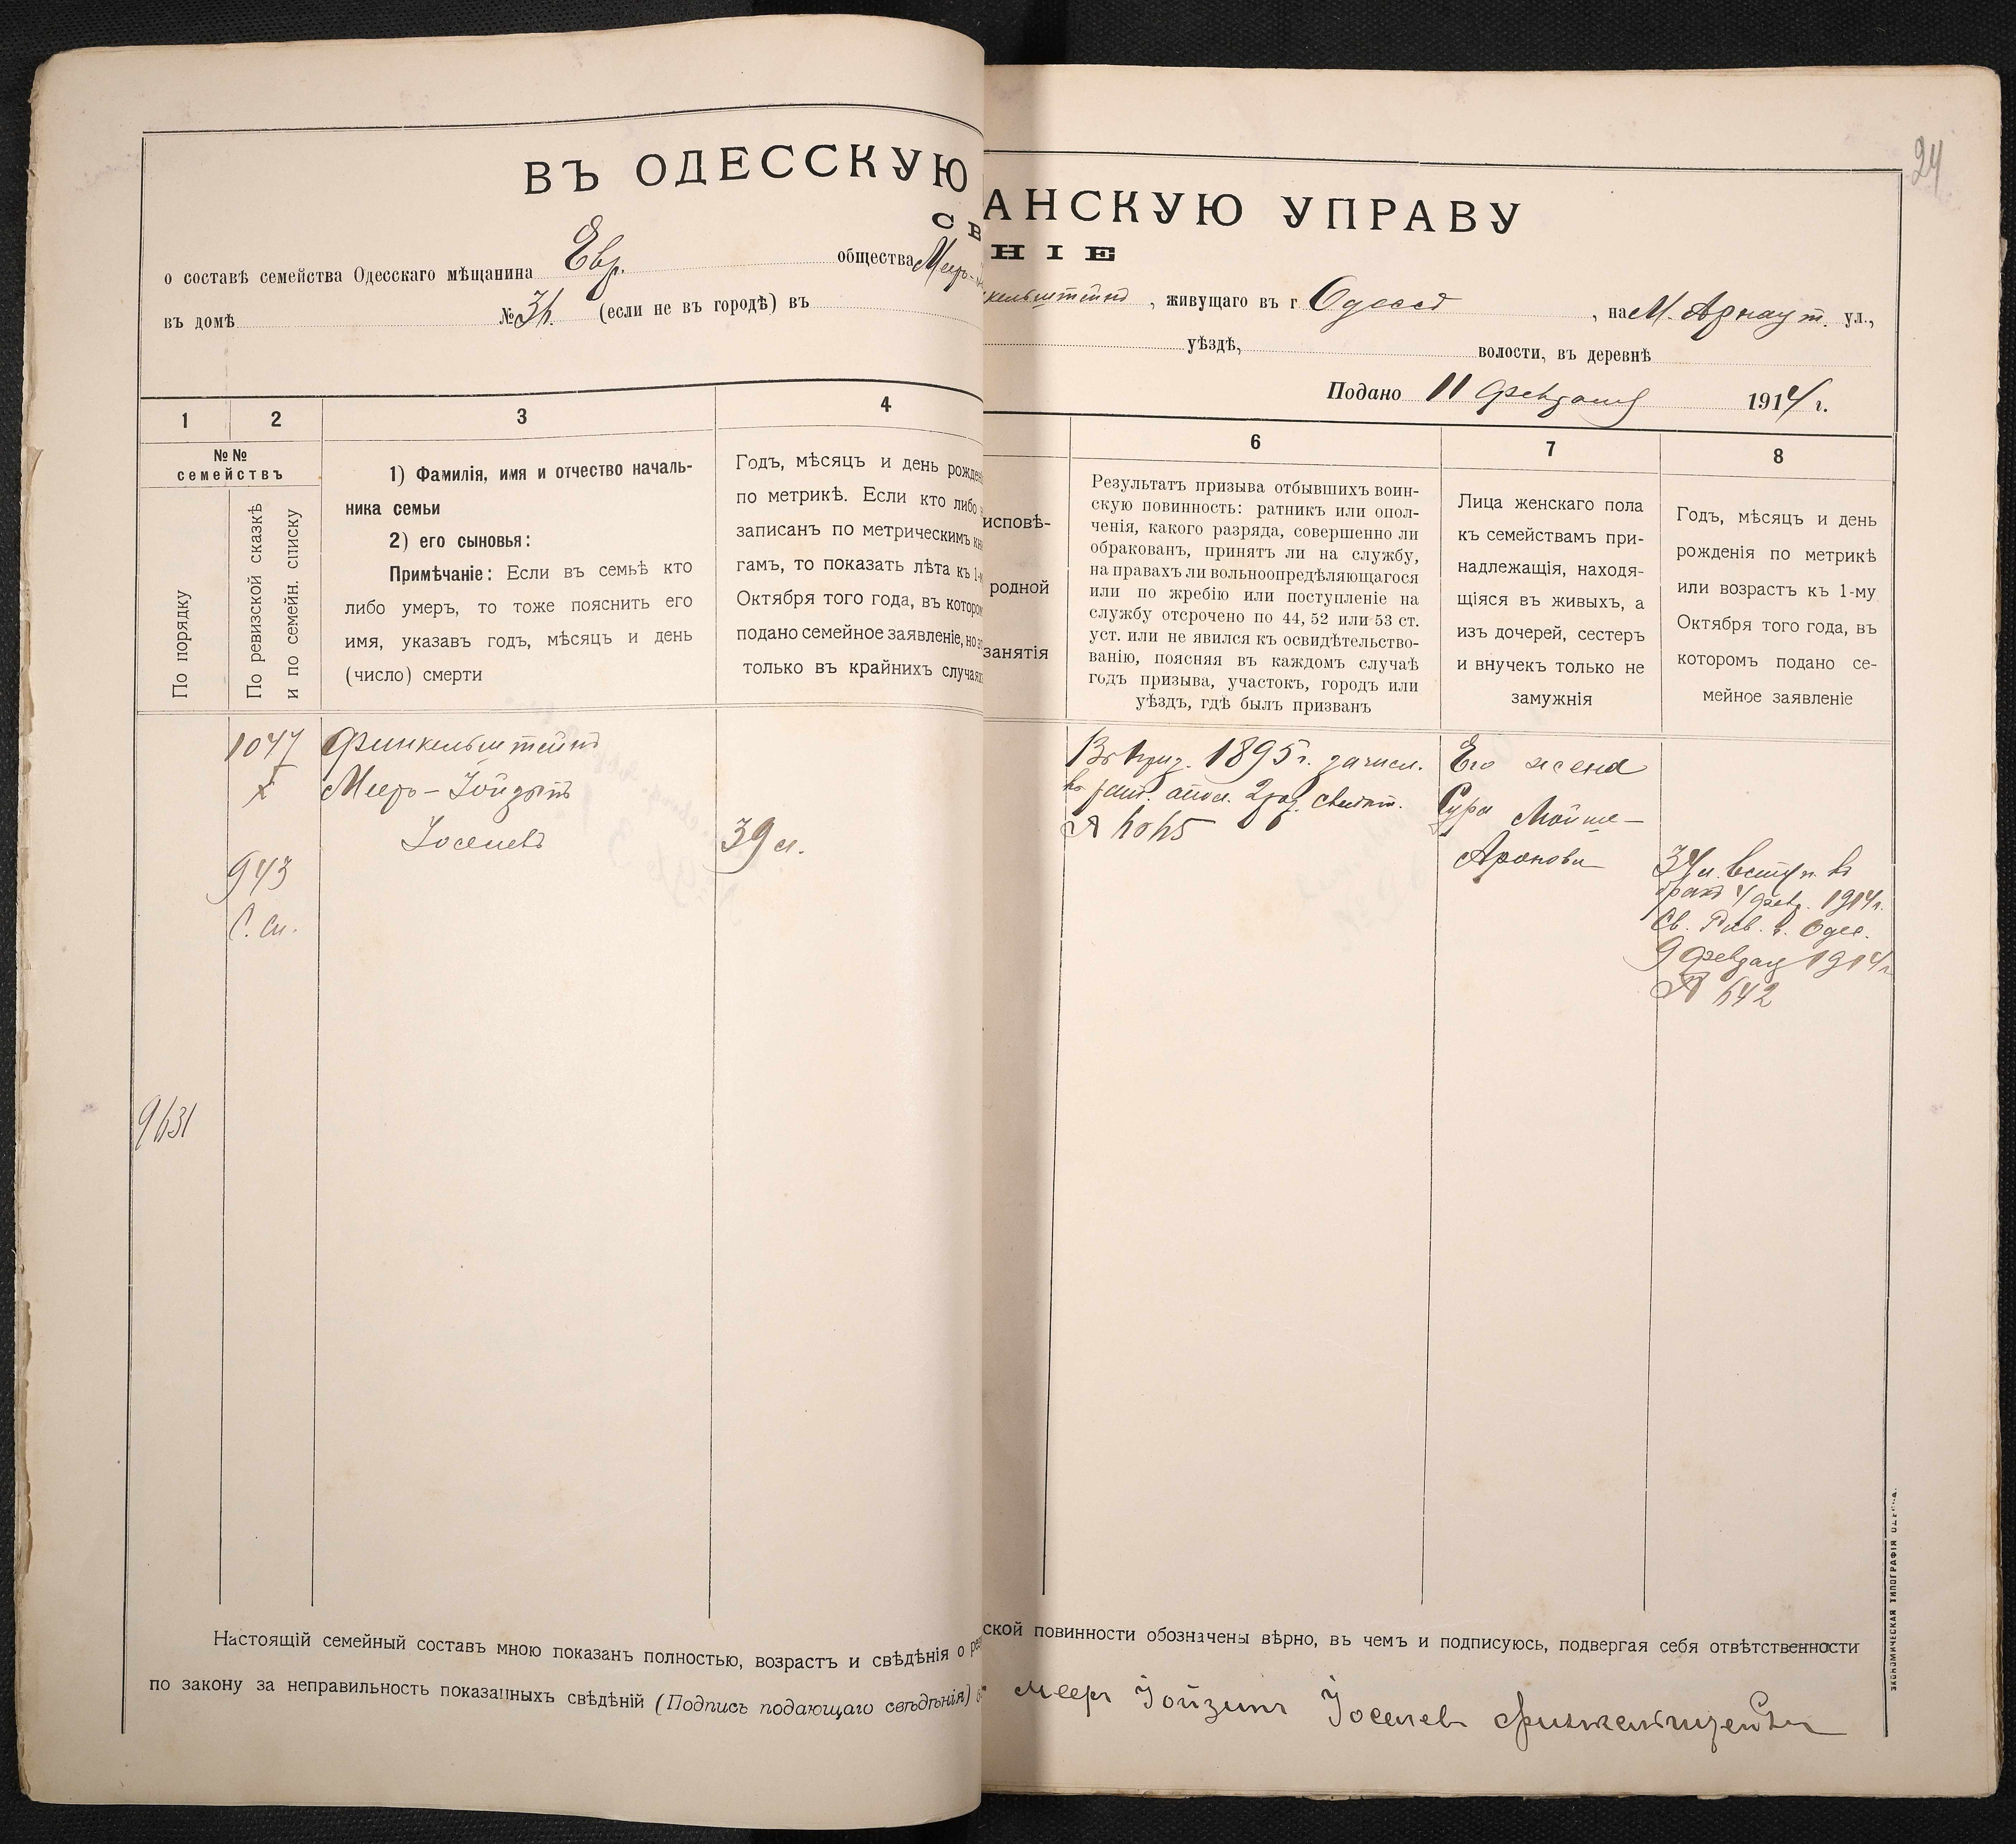 24
ВЪ ОДЕССКУЮ
АНСКУЮ УПРАВУ
СВ
НІЕ
о составѣ семейства Одесскаго мѣщанина Евр. общества Мееръ-
кельштейнъ, живущаго въ г Одессѣ, на М. Арнаут. ул.,
въ домѣ № (если не въ городѣ) въ
уѣздѣ, волости, въ деревнѣ
Подано 11 февраля 1914 г.
1
2
3
4
№№
семействъ
По порядку
По ревизской сказкѣ
и по семейн. списку
1) Фамилія, имя и отчество началь-
ника семьи
2) его сыновья:
Примѣчаніе: Если въ семьѣ кто
либо умеръ, то тоже пояснить его
имя, указавъ годъ, мѣсяцъ и день
(число) смерти
Годъ, мѣсяцъ и день рожде
по метрикѣ. Если кто либо
записанъ по метрическимъ
гамъ, то показать лѣта къ 1-
Октября того года, въ котором
подано семейное заявленіе, но
только въ крайнихъ случаях
исповѣ-
родной
занятія
6
Результатъ призыва отбывшихъ воин-
скую повинность: ратникъ или опол-
ченія, какого разряда, совершенно ли
обракованъ, принятъ ли на службу,
на правахъ ли вольноопредѣляющагося
или по жребію или поступленіе на
службу отсрочено по 44, 52 или 53 ст.
уст. или не явился къ освидѣтельство-
ванію, поясняя въ каждомъ случаѣ
годъ призыва, участокъ, городъ или
уѣздъ, гдѣ былъ призванъ
7
Лица женскаго пола
къ семействамъ при-
надлежащія, находя-
щіяся въ живыхъ, а
изъ дочерей, сестеръ
и внучекъ только не
замужнія
8
Годъ, мѣсяцъ и день
рожденія по метрикѣ
или возрастъ къ 1-му
Октября того года, въ
которомъ подано се-
мейное заявленіе
1047
943
С. сп.
9631
Финкельштейнъ
Мееръ-Іойзипъ
Іоселевъ
39 л.
Въ приз. 1895 г. зачисл.
въ рат. опол. 2 раз. свидѣт.
№
Его жена
Сура Мойше-
Аронова
34 л. вступ. въ
бракъ 4 февр. 1914 г.
Св. Рав. г. Одес.
9 февраля 1914 г.
№ 642
Настоящій семейный составъ мною показанъ полностью, возрастъ и свѣдѣнія о ре
ской повинности обозначены вѣрно, въ чемъ и подписуюсь, подвергая себя отвѣтственности
по закону за неправильность показанныхъ свѣдѣній (Подпись подающаго свѣдѣнія)
Мееръ Іойзипъ Іоселевъ Финкельштейнъ
ЭКОНОМИЧЕСКАЯ ТИПОГРАФІЯ